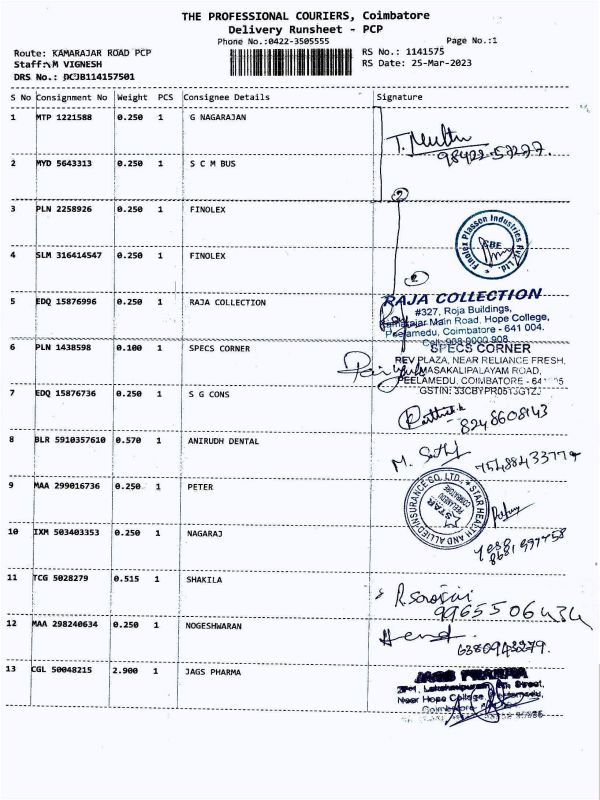 THE PROFESSIONAL COURIERS, Coimbatore
Delivery Runsheet - PCP
Phone No.:0422-3505555 Page No.:1
Route: KAMARAJAR ROAD PCP RS No.: 1141575
Staff:\M VIGNESH RS Date: 25-Mar-2023
DRS No.: PCJB114157501
S No Consignment No Weight PCS Consignee Details Signature
1 MTP 1221588 0.250 1 G NAGARAJAN
T. Muthu
98422-57277.
2 MYD 5643313 0.250 1 S C M BUS
2
3 PLN 2258926 0.250 1 FINOLEX
Finolex Plasson Industries Pvt. Ltd.
CBE
4 SLM 316414547 0.250 1 FINOLEX
2
5 EDQ 15876996 0.250 1 RAJA COLLECTION
RAJA COLLECTION
#327, Roja Buildings,
Kamarajar Main Road, Hope College,
Peelamedu, Coimbatore - 641 004.
Cell: 988 0000 908
6 PLN 1438598 0.100 1 SPECS CORNER
SPECS CORNER
REV PLAZA, NEAR RELIANCE FRESH,
MASAKALIPALAYAM ROAD,
PEELAMEDU, COIMBATORE - 64
GSTIN: 33CBYPR0513G1ZJ
7 EDQ 15876736 0.250 1 S G CONS
Karthick
8248608143
8 BLR 5910357610 0.570 1 ANIRUDH DENTAL
M. Sathf
9 MAA 299016736 0.250 1 PETER
STAR HEALTH AND ALLIED INSURANCE CO. LTD.
STAR
PEELAMEDU
COIMBATORE
10 IXM 503403353 0.250 1 NAGARAJ
11 TCG 5028279 0.515 1 SHAKILA
R. Sarojini
12 MAA 298240634 0.250 1 NOGESHWARAN
6380943279.
13 CGL 50048215 2.900 1 JAGS PHARMA
JAGS PHARMA
Near Hope College,
Coimbatore